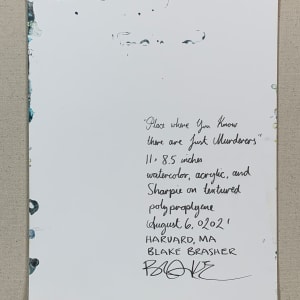 "Place where You Know
there are Just Murderers"
11 × 8.5 inches
watercolor, acrylic, and
Sharpie on textured
polyproplyene
August 6, 02021
HARVARD, MA
BLAKE BRASHER
BLAKE